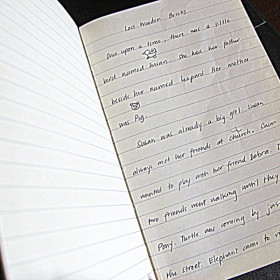 Lost Wooden Bricks
Once upon a time, there was a little
bird named Susan. She had her father
beside her named leopard. Her mother
was Pig.
Susan was already a big girl. Susan
always met her friends at church. Susan
wanted to play with her friend Zebra. T
two friends went walking until they
Pony. Turtle was coming by
the street. Elephant came to